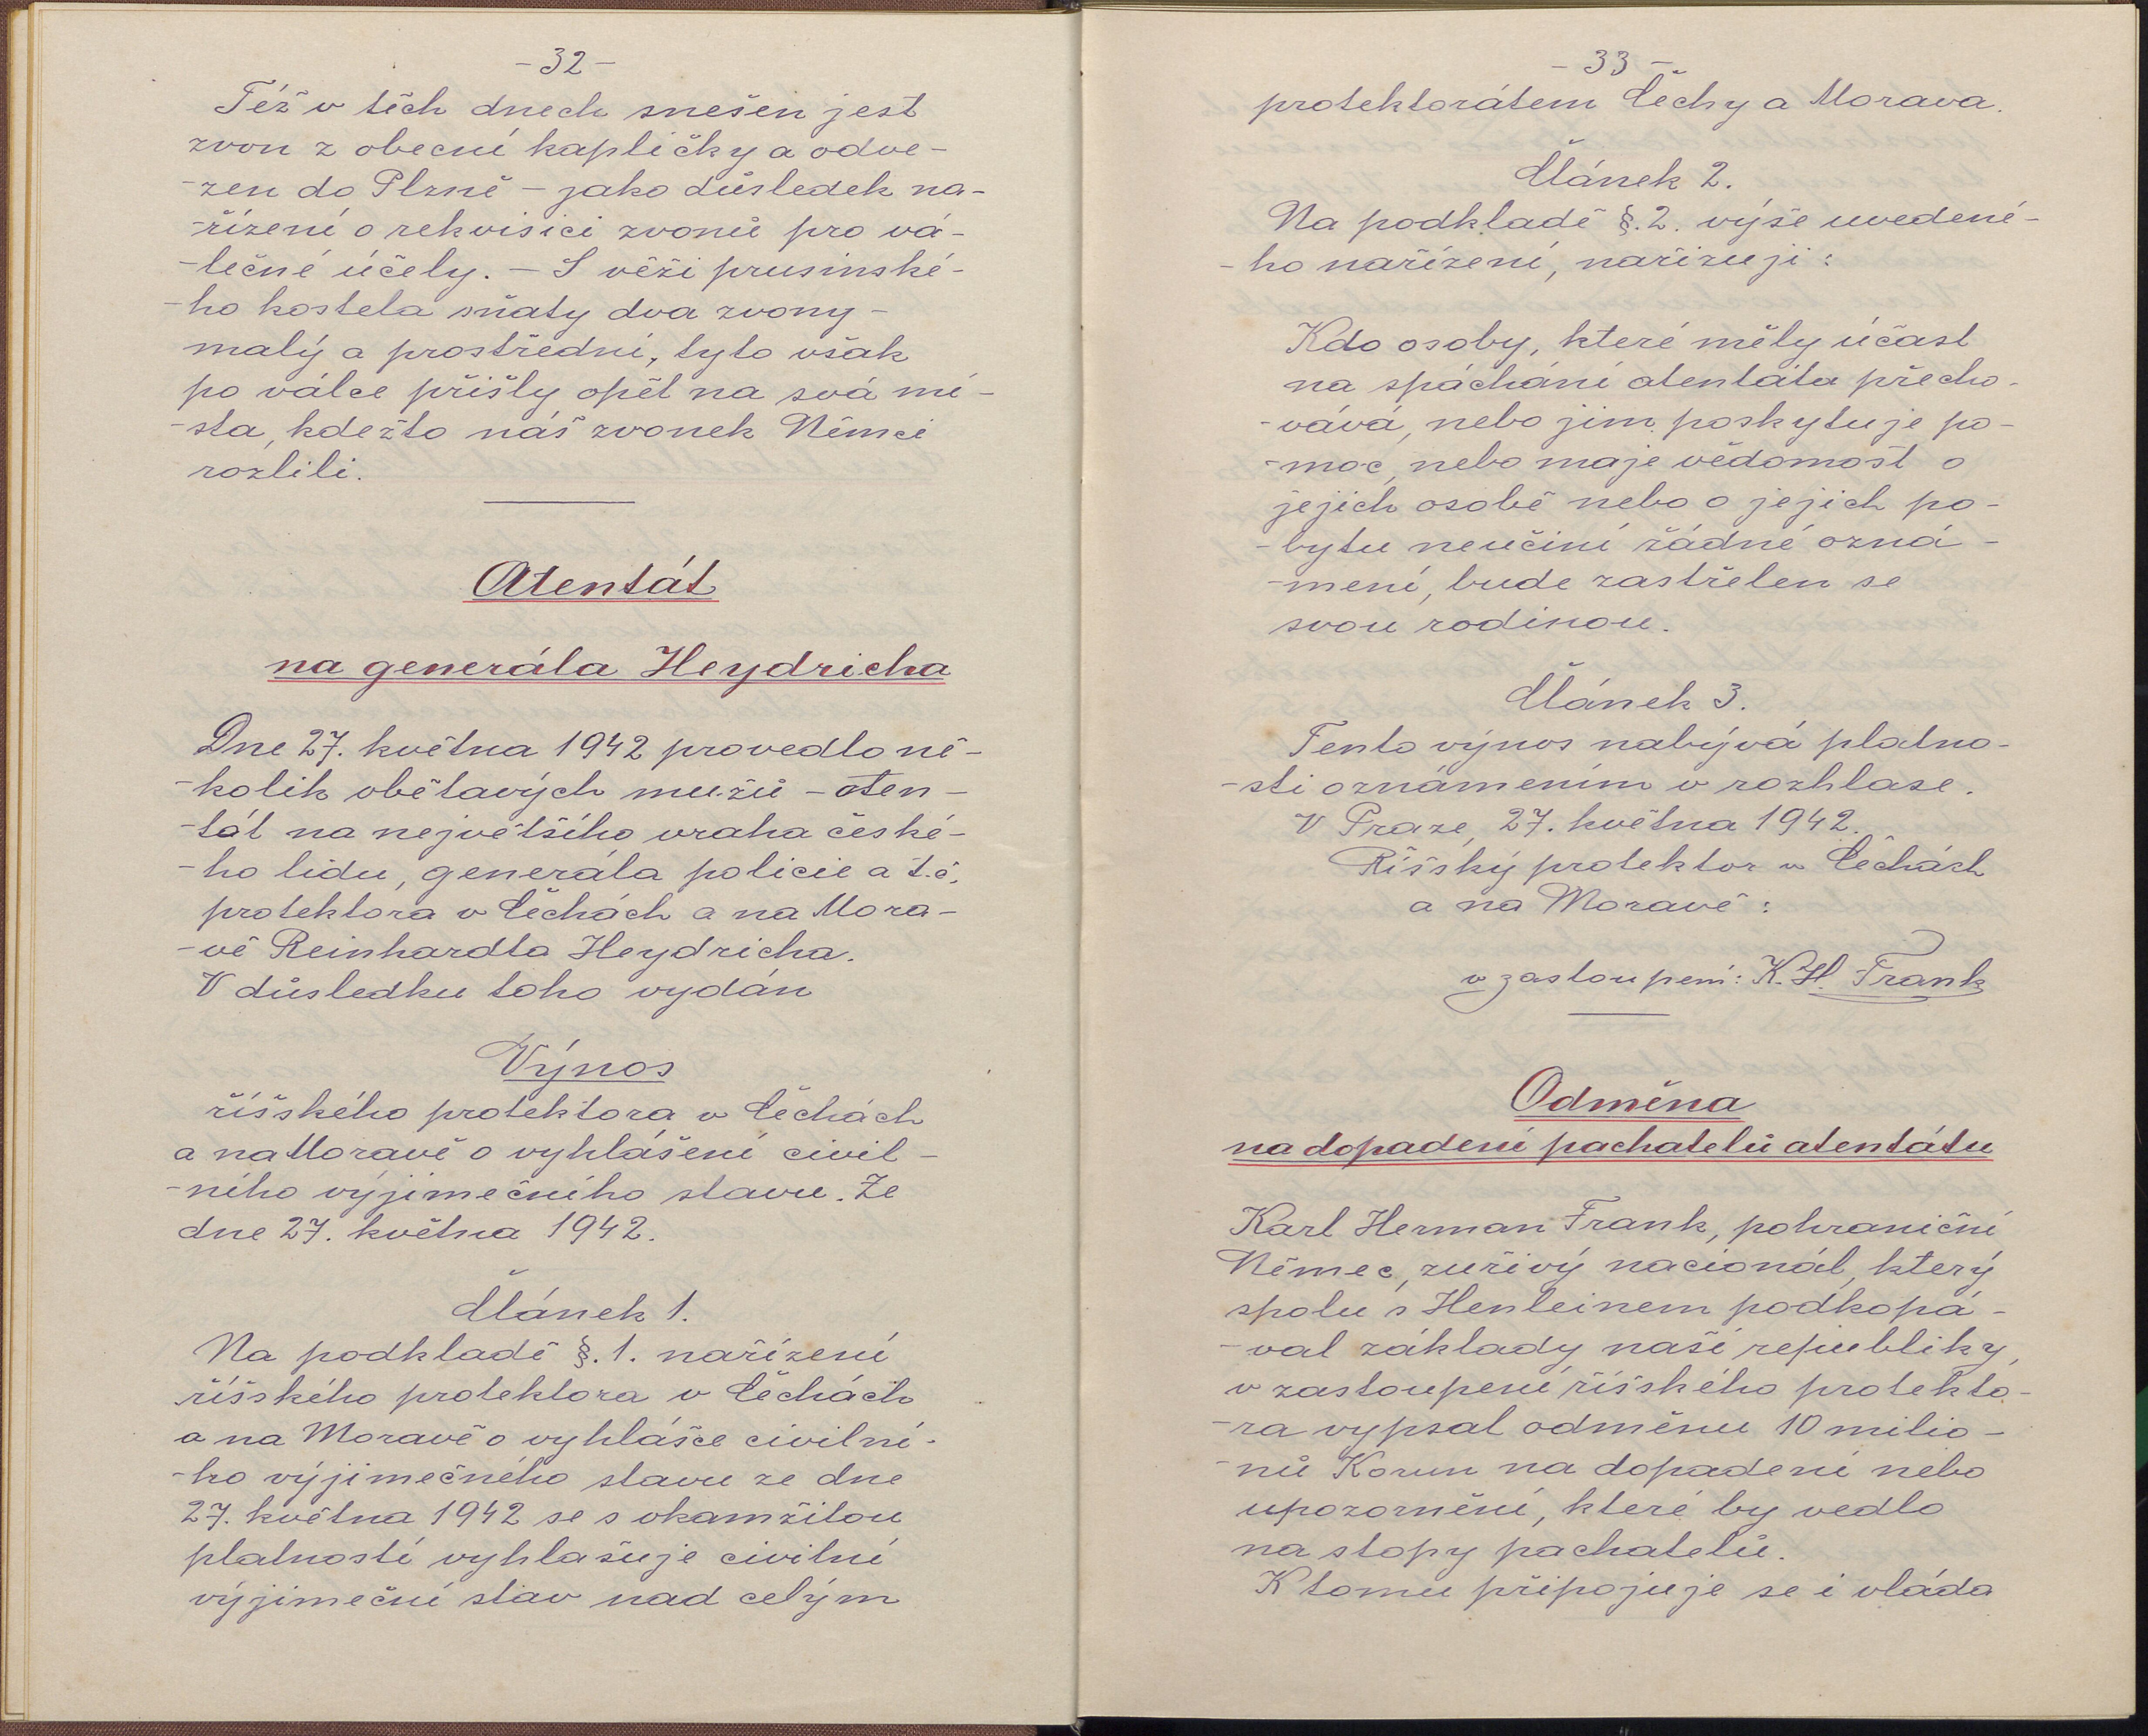 -32-
Též v těch dnech snešen jest
zvon z obecní kapličky a odve-
-zen do Plzně - jako důsledek na-
-řízení o rekvisici zvonů pro vá-
-lečné účely. - S věži prusinské-
-ho kostela sňaty dva zvony -
malý a prostřední, tyto však
po válce přišly opět na svá mí-
-sta, kdežto náš zvonek Němci
rozlili.
Atentát
na generála Heydricha
Dne 27. května 1942 provedlo ně-
-kolik obětavých mužů - aten-
-tát na největšího vraha české-
-ho lidu, generála policie a t.č.
protektora v Čechách a na Mora-
-vě Reinhardta Heydricha.
V důsledku toho vydán
Výnos
říšského protektora v Čechách
a na Moravě o vyhlášení civil-
-ního výjimečního stavu. Ze
dne 27. května 1942.
Článek 1.
Na podkladě §.1. nařízení
říšského protektora v Čechách
a na Moravě o vyhlášce civilní-
-ho výjimečného stavu ze dne
27. května 1942 se s okamžitou
platností vyhlašuje civilní
výjimeční stav nad celým
-33-
protektorátem Čechy a Morava.
Článek 2.
Na podkladě §.2. výše uvedené-
-ho nařízení, nařizuji:
Kdo osoby, které měly účast
na spáchání atentátu přecho-
-vává, nebo jim poskytuje po-
-moc, nebo maje vědomost o
jejich osobě nebo o jejich po-
-bytu neučiní žádné ozná-
-mení, bude zastřelen se
svou rodinou.
Článek 3.
Tento výnos nabývá platno-
-sti oznámením v rozhlase.
V Praze, 27. května 1942.
Říšský protektor v Čechách
a na Moravě:
v zastoupení: K.H. Frank
Odměna
na dopadení pachatelů atentátu
Karl Herman Frank, pohraniční
Němec, zuřivý nacionál, který
spolu s Henleinem podkopá-
-val základy naší republiky,
v zastoupení říšského protekto-
-ra vypsal odměnu 10 milio-
-nů Korun na dopadení nebo
upozornění, které by vedlo
na stopy pachatelů.
K tomu připojuje se i vláda